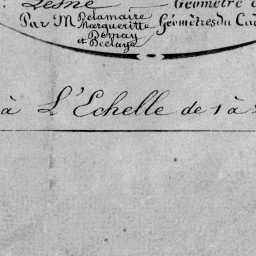 Lesne Géomètre
Par M Delamaire
Margueritte Géomètres du
Dernay
et Declaye
à L'Echelle de 1 à